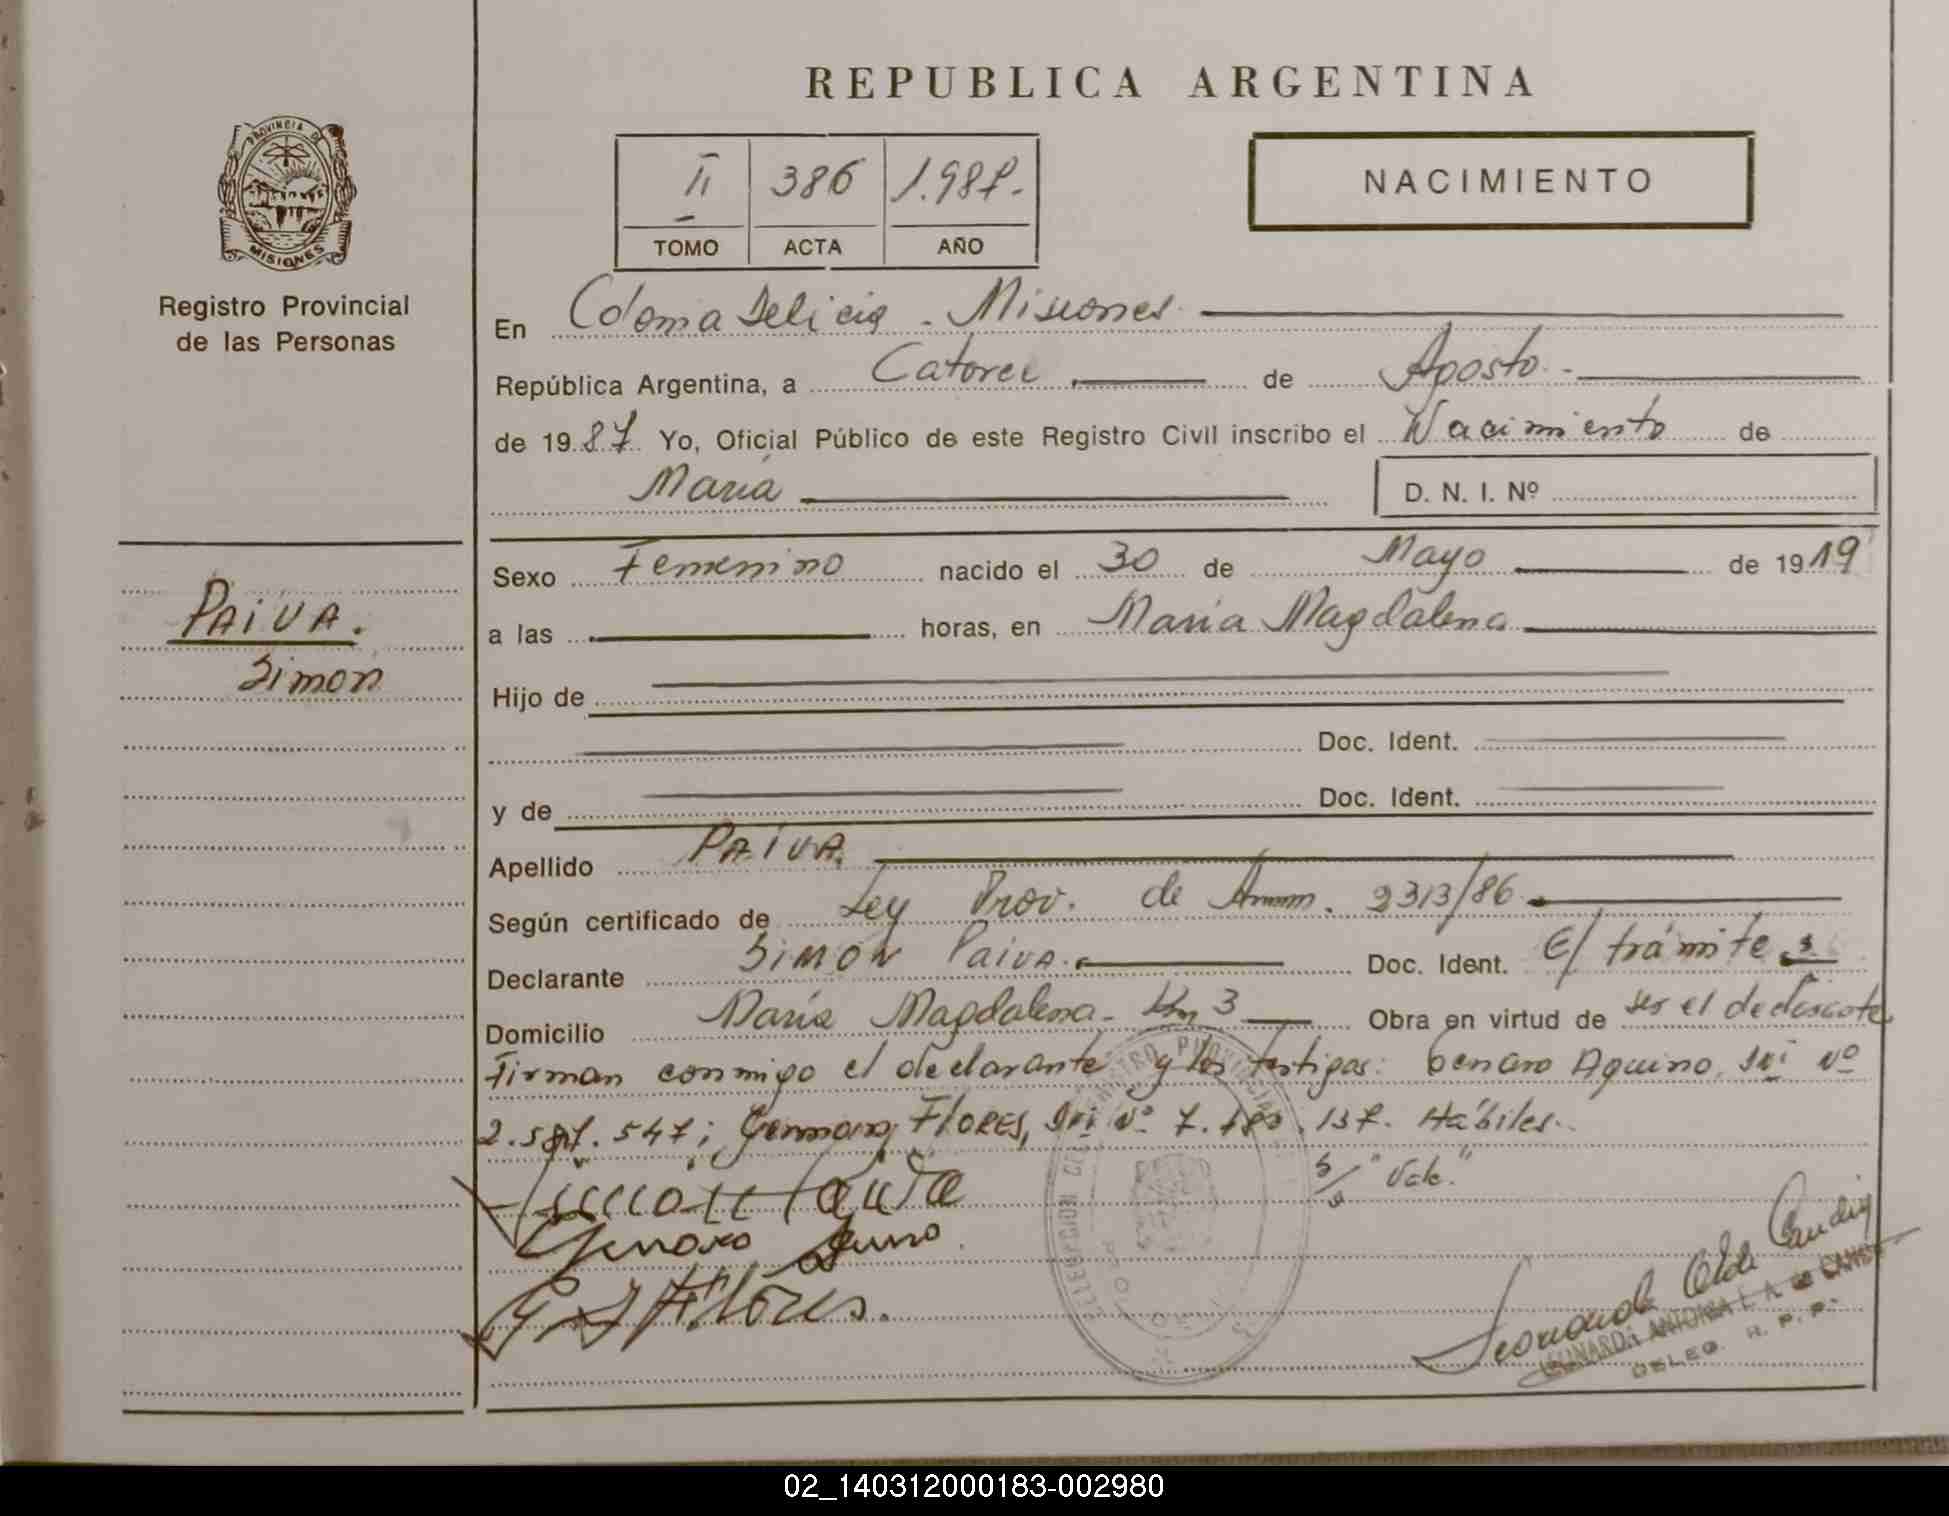 REPUBLICA ARGENTINA
PROVINCIA DE
MISIONES
Registro Provincial
de las Personas
II 386 1.987.-
TOMO ACTA AÑO
NACIMIENTO
En Colonia Delicia - Misiones
República Argentina, a Catorce de Agosto.-
de 1987 Yo, Oficial Público de este Registro Civil inscribo el Nacimiento de
María
D. N. I. Nº
PAIVA.
Simon
Sexo Femenino nacido el 30 de Mayo de 1919
a las horas, en María Magdalena
Hijo de
Doc. Ident.
y de Doc. Ident.
Apellido PAIVA.
Según certificado de Ley Prov. de Amn. 2313/86
Declarante SIMON Paiva. Doc. Ident. E/ trámite
Domicilio María Magdalena- Km 3 Obra en virtud de ser el
Firman conmigo el declarante y los testigos: Genaro Aquino, Nº
547; FLORES, Nº 7. 137. Hábiles.
"Vale."
Genaro
Flores.
LEONARDA ANTONIA L. A. de
DELEG. R. P. P.
02_140312000183-002980